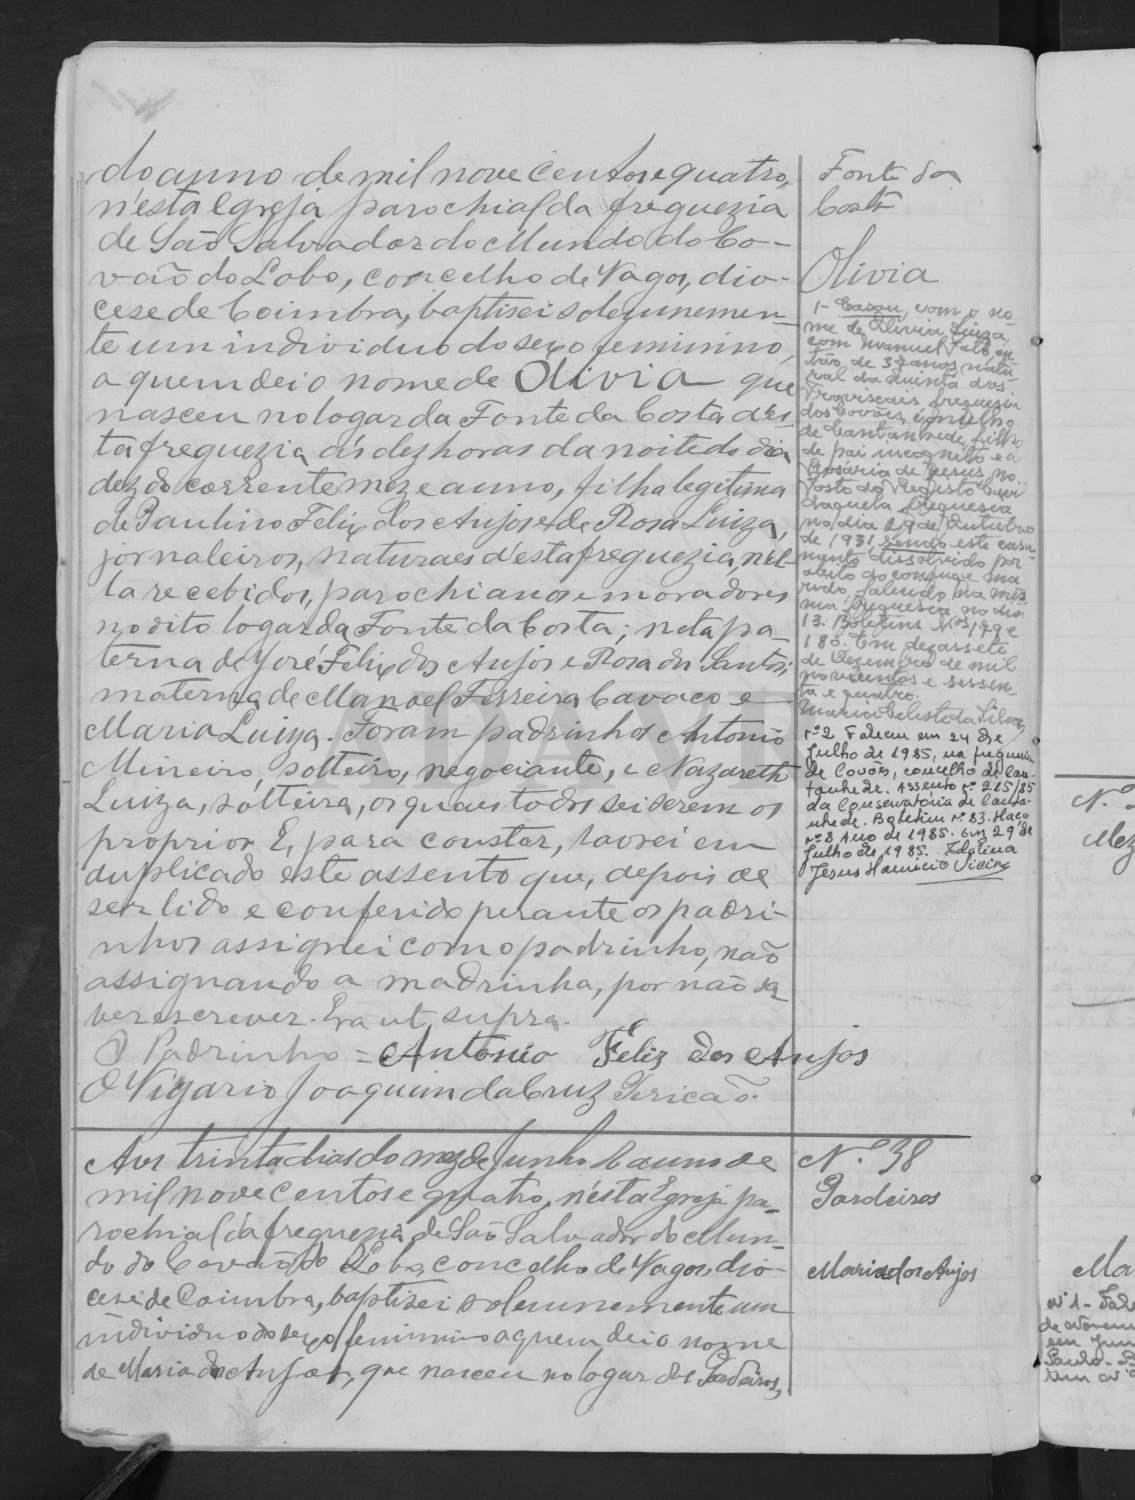 do anno de mil nove centos e quatro,
n'esta Egreja parochial da freguezia
de São Salvador do Mundo do Co-
vão do Lobo, concelho de Vagos, dio-
cese de Coimbra, baptisei solemnemen-
te um individuo do sexo feminino,
a quem dei o nome de Olivia que
nasceu no logar da Fonte da Costa d'es-
ta freguezia ás dez horas da noite do dia
dez do corrente mez e anno, filha legitima
de Paulino Felix dos Anjos e de Rosa Luiza,
jornaleiros, naturaes d'esta freguezia, n'el-
la recebidos, parochianos e moradores
no dito logar da Fonte da Costa; neta pa-
terna de José Felix dos Anjos e Rosa dos Santos,
materna de Manoel Ferreira Cavaco e
Maria Luiza. Foram padrinhos Antonio
Mineiro, solteiro, negociante, e Nazareth
Luiza, solteira, os quaes todos sei serem os
proprios E, para constar, lavrei em
duplicado este assento que, depois de
ser lido e conferido perante os padri-
nhos assignei com o padrinho, não
assignando a madrinha, por não sa
ber escrever. Era ut supra.
O Padrinho = Antonio Feliz dos Anjos
O Vigario Joaquim da Cruz Pericão.
Fonte da
Costa
Olivia
1- Casou, com o no-
me de Olivia Luiza,
com Manuel
de 37 anos, natu-
ral da Quinta dos
Troviscais, freguesia
dos Covões, concelho
de Cantanhede, filho
de pai incognito e de
Rosária de Jesus, no
Posto do Registo Civil
daquela freguesia
no dia 29 de Outubro
de 1931, sendo este casa-
mento dissolvido por
obito do conjuge ma
rido, falecido na mes
ma freguesia no dia
13. Boletins Nos 179 e
180. Em dezassete
de Dezembro de mil
novecentos e sessen-
ta e quatro.
Maria Celeste da Silva
Nº 2 Faleceu em 24 de
Julho de 1985, na freguesia
de Covões, concelho de Can-
tanhede. Assento nº 215/85
da Conservatória de Canta-
nhede. Boletim nº 83. Maço
nº 8 Ano de 1985. Em 29 de
Julho de 1985. Idalina
Jesus Mauricio Vieira
Aos trinta dias do mez de Junho do anno de
mil nove centos e quatro, n'esta Egreja pa-
rochial da freguezia de São Salvador do Mun-
do do Covão do Lobo, concelho de Vagos, dio-
cese de Coimbra, baptisei solemnemente um
individuo do sexo feminino a quem dei o nome
de Maria dos Anjos, que nasceu no logar dos Pardeiros,
N.º 38
Pardeiros
Maria dos Anjos
ADAVR
N.º
Mez
Ma
Nº 1 - Fal
de Novem
em Jun
Paulo - B